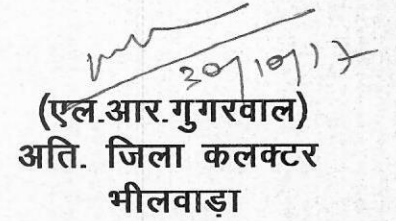 30/10/17
(एल.आर.गुगरवाल)
अति. जिला कलक्टर
भीलवाड़ा